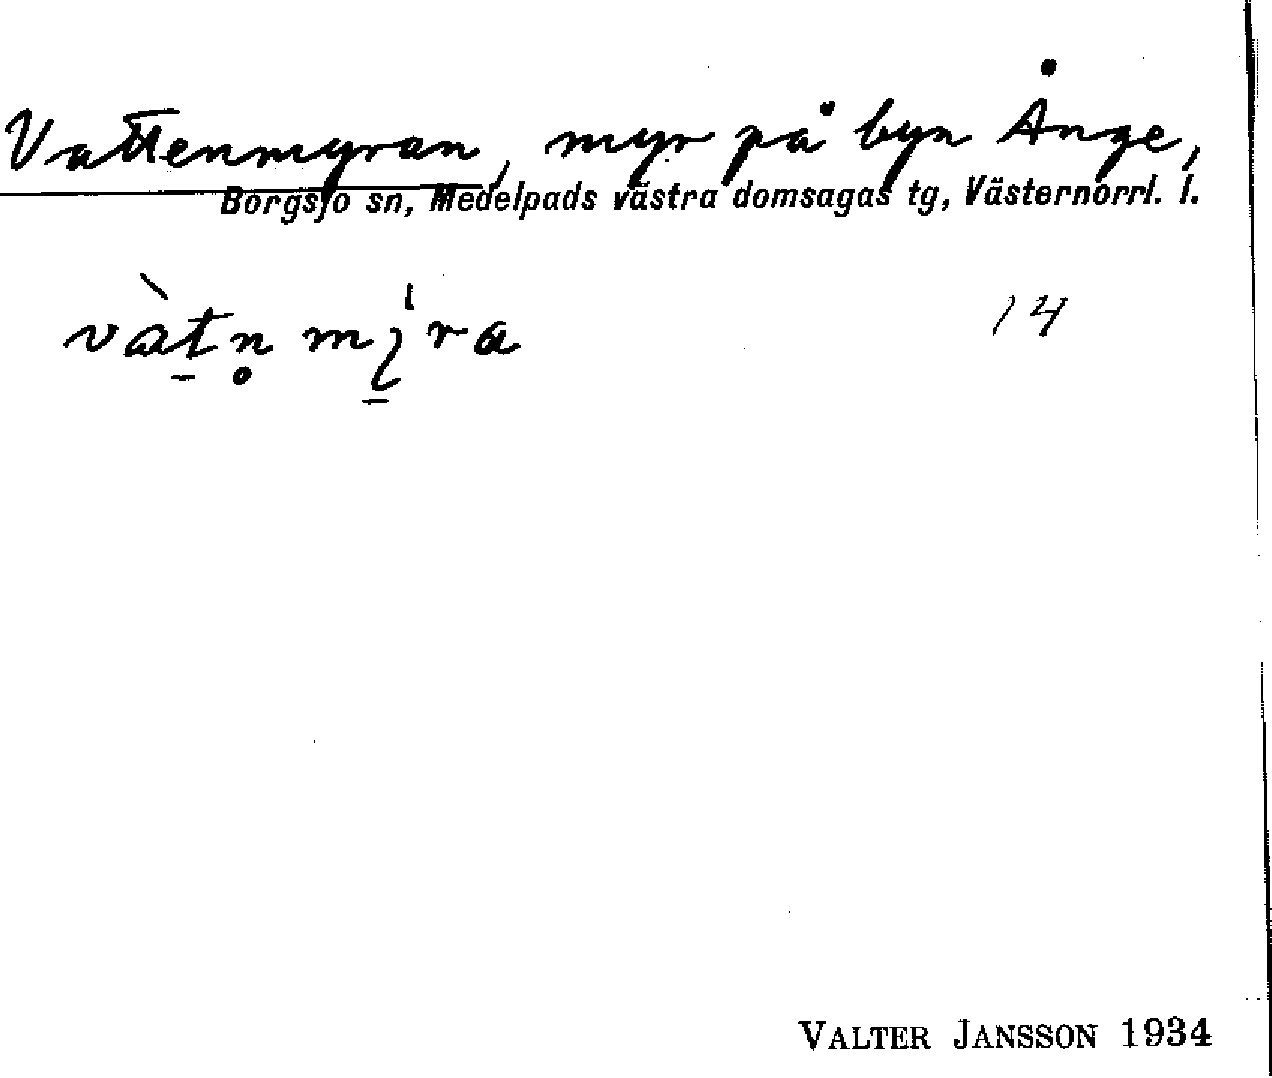 Vattenmyran, myr på byn Ånge,
Borgsjö sn, Medelpads västra domsagas tg, Västernorrl. l.
vàt̠n̥ my̠̍ra 14
VALTER JANSSON 1934